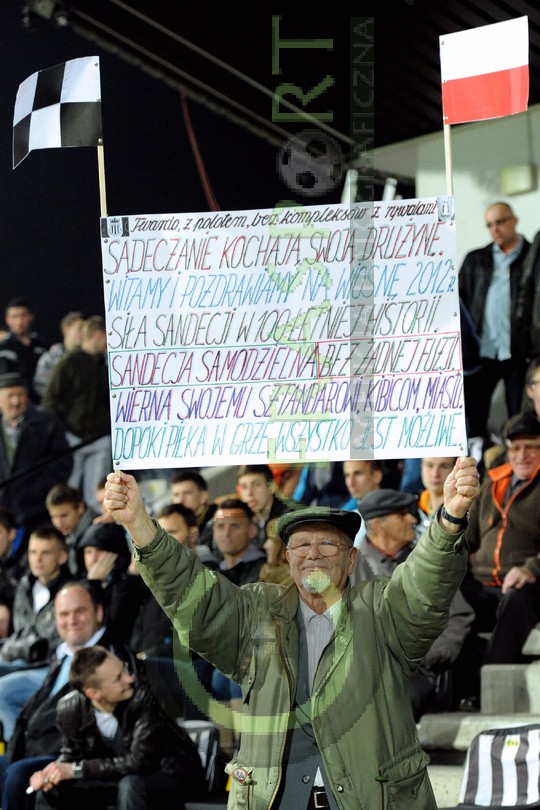 Twardo, z polotem, bez kompleksów z rywalami
SĄDECZANIE KOCHAJĄ SWOJĄ DRUŻYNĘ
WITAMY I POZDRAWIAMY NA WIOSNĘ 2012 r.
SIŁA SANDECJI W 100 LETNIEJ HISTORII
SANDECJA SAMODZIELNA BEZ ŻADNEJ
WIERNA SWOJEMU SZTANDAROWI, KIBICOM, MIASTU
DOPÓKI PIŁKA W GRZE WSZYSTKO JEST MOŻLIWE